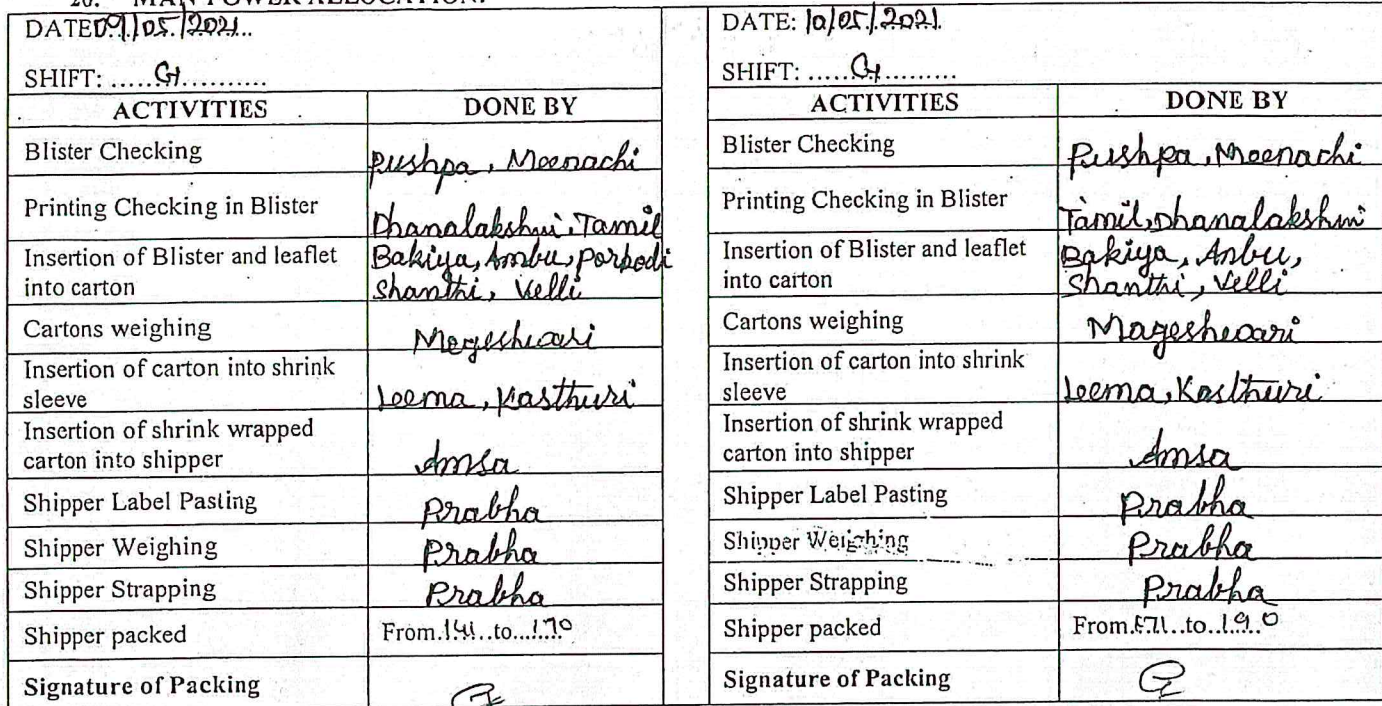 20. MAN POWER ALLOCATION:
DATE 09/05/2021..
SHIFT: .....G..........
ACTIVITIES DONE BY
Blister Checking Pushpa, Meenachi
Printing Checking in Blister Dhanalakshmi, Tamil
Insertion of Blister and leaflet Bakiya, Ambu, Porkodi
into carton Shanthi, Velli
Cartons weighing Mageshwari
Insertion of carton into shrink
sleeve Leema, Kasthuri
Insertion of shrink wrapped
carton into shipper Amsa
Shipper Label Pasting Prabha
Shipper Weighing Prabha
Shipper Strapping Prabha
Shipper packed From.141..to...170
Signature of Packing
DATE: 10/05/2021.
SHIFT: .....G.........
ACTIVITIES DONE BY
Blister Checking Pushpa, Meenachi
Printing Checking in Blister Tamil, Dhanalakshmi
Insertion of Blister and leaflet Bakiya, Anbu,
into carton Shanthi, Velli
Cartons weighing Mageshwari
Insertion of carton into shrink
sleeve Leema, Kasthuri
Insertion of shrink wrapped
carton into shipper Amsa
Shipper Label Pasting Prabha
Shipper Weighing Prabha
Shipper Strapping Prabha
Shipper packed From.171..to..190
Signature of Packing